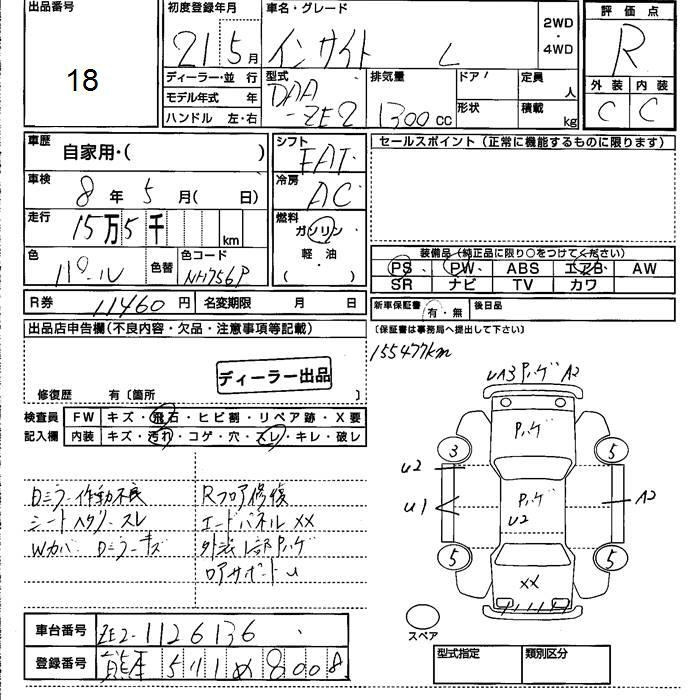 出品番号
18
初度登録年月
21 5月
車名・グレード
インサイト L
2WD
・
4WD
評価点
R
ディーラー・並 行
モデル年式 年
ハンドル 左・右
型式
DAA
-ZE2
排気量
1300cc
ドア
形状
定員
人
積載
kg
外装 内装
C C
車歴
自家用・( )
シフト
FAT
セールスポイント (正常に機能するものに限ります)
車検
8年 5月( 日)
冷房
AC
走行
15万5千 km
燃料
ガソリン
軽・油
( )
色
パール
色替
色コード
NH756P
装備品(純正品に限り○をつけてください)
PS PW ABS エアB AW
SR ナビ TV カワ
R券 11460円
名変期限 月 日
新車保証書 有・無
後日品
出品店申告欄(不良内容・欠品・注意事項等記載)
(保証書は事務局へ提出して下さい)
155477km
ディーラー出品
修復歴 有〔箇所 〕
検査員
記入欄
FW キズ・飛石・ヒビ割・リペア跡・X要
内装 キズ・汚れ・コゲ・穴・スレ・キレ・破レ
UA3 パゲ A2
パゲ
3 5
U2
U1
パゲ
U2
A2
5 5
XX
スペア
Dミラー作動不良
シートヘタリ・スレ
Wカバー Dミラーキズ
Rフロア修復
エンドパネルXX
外装1部パゲ
ロアサポートU
車台番号 ZE2-1126136
登録番号 熊本 511 め 8008
型式指定
類別区分